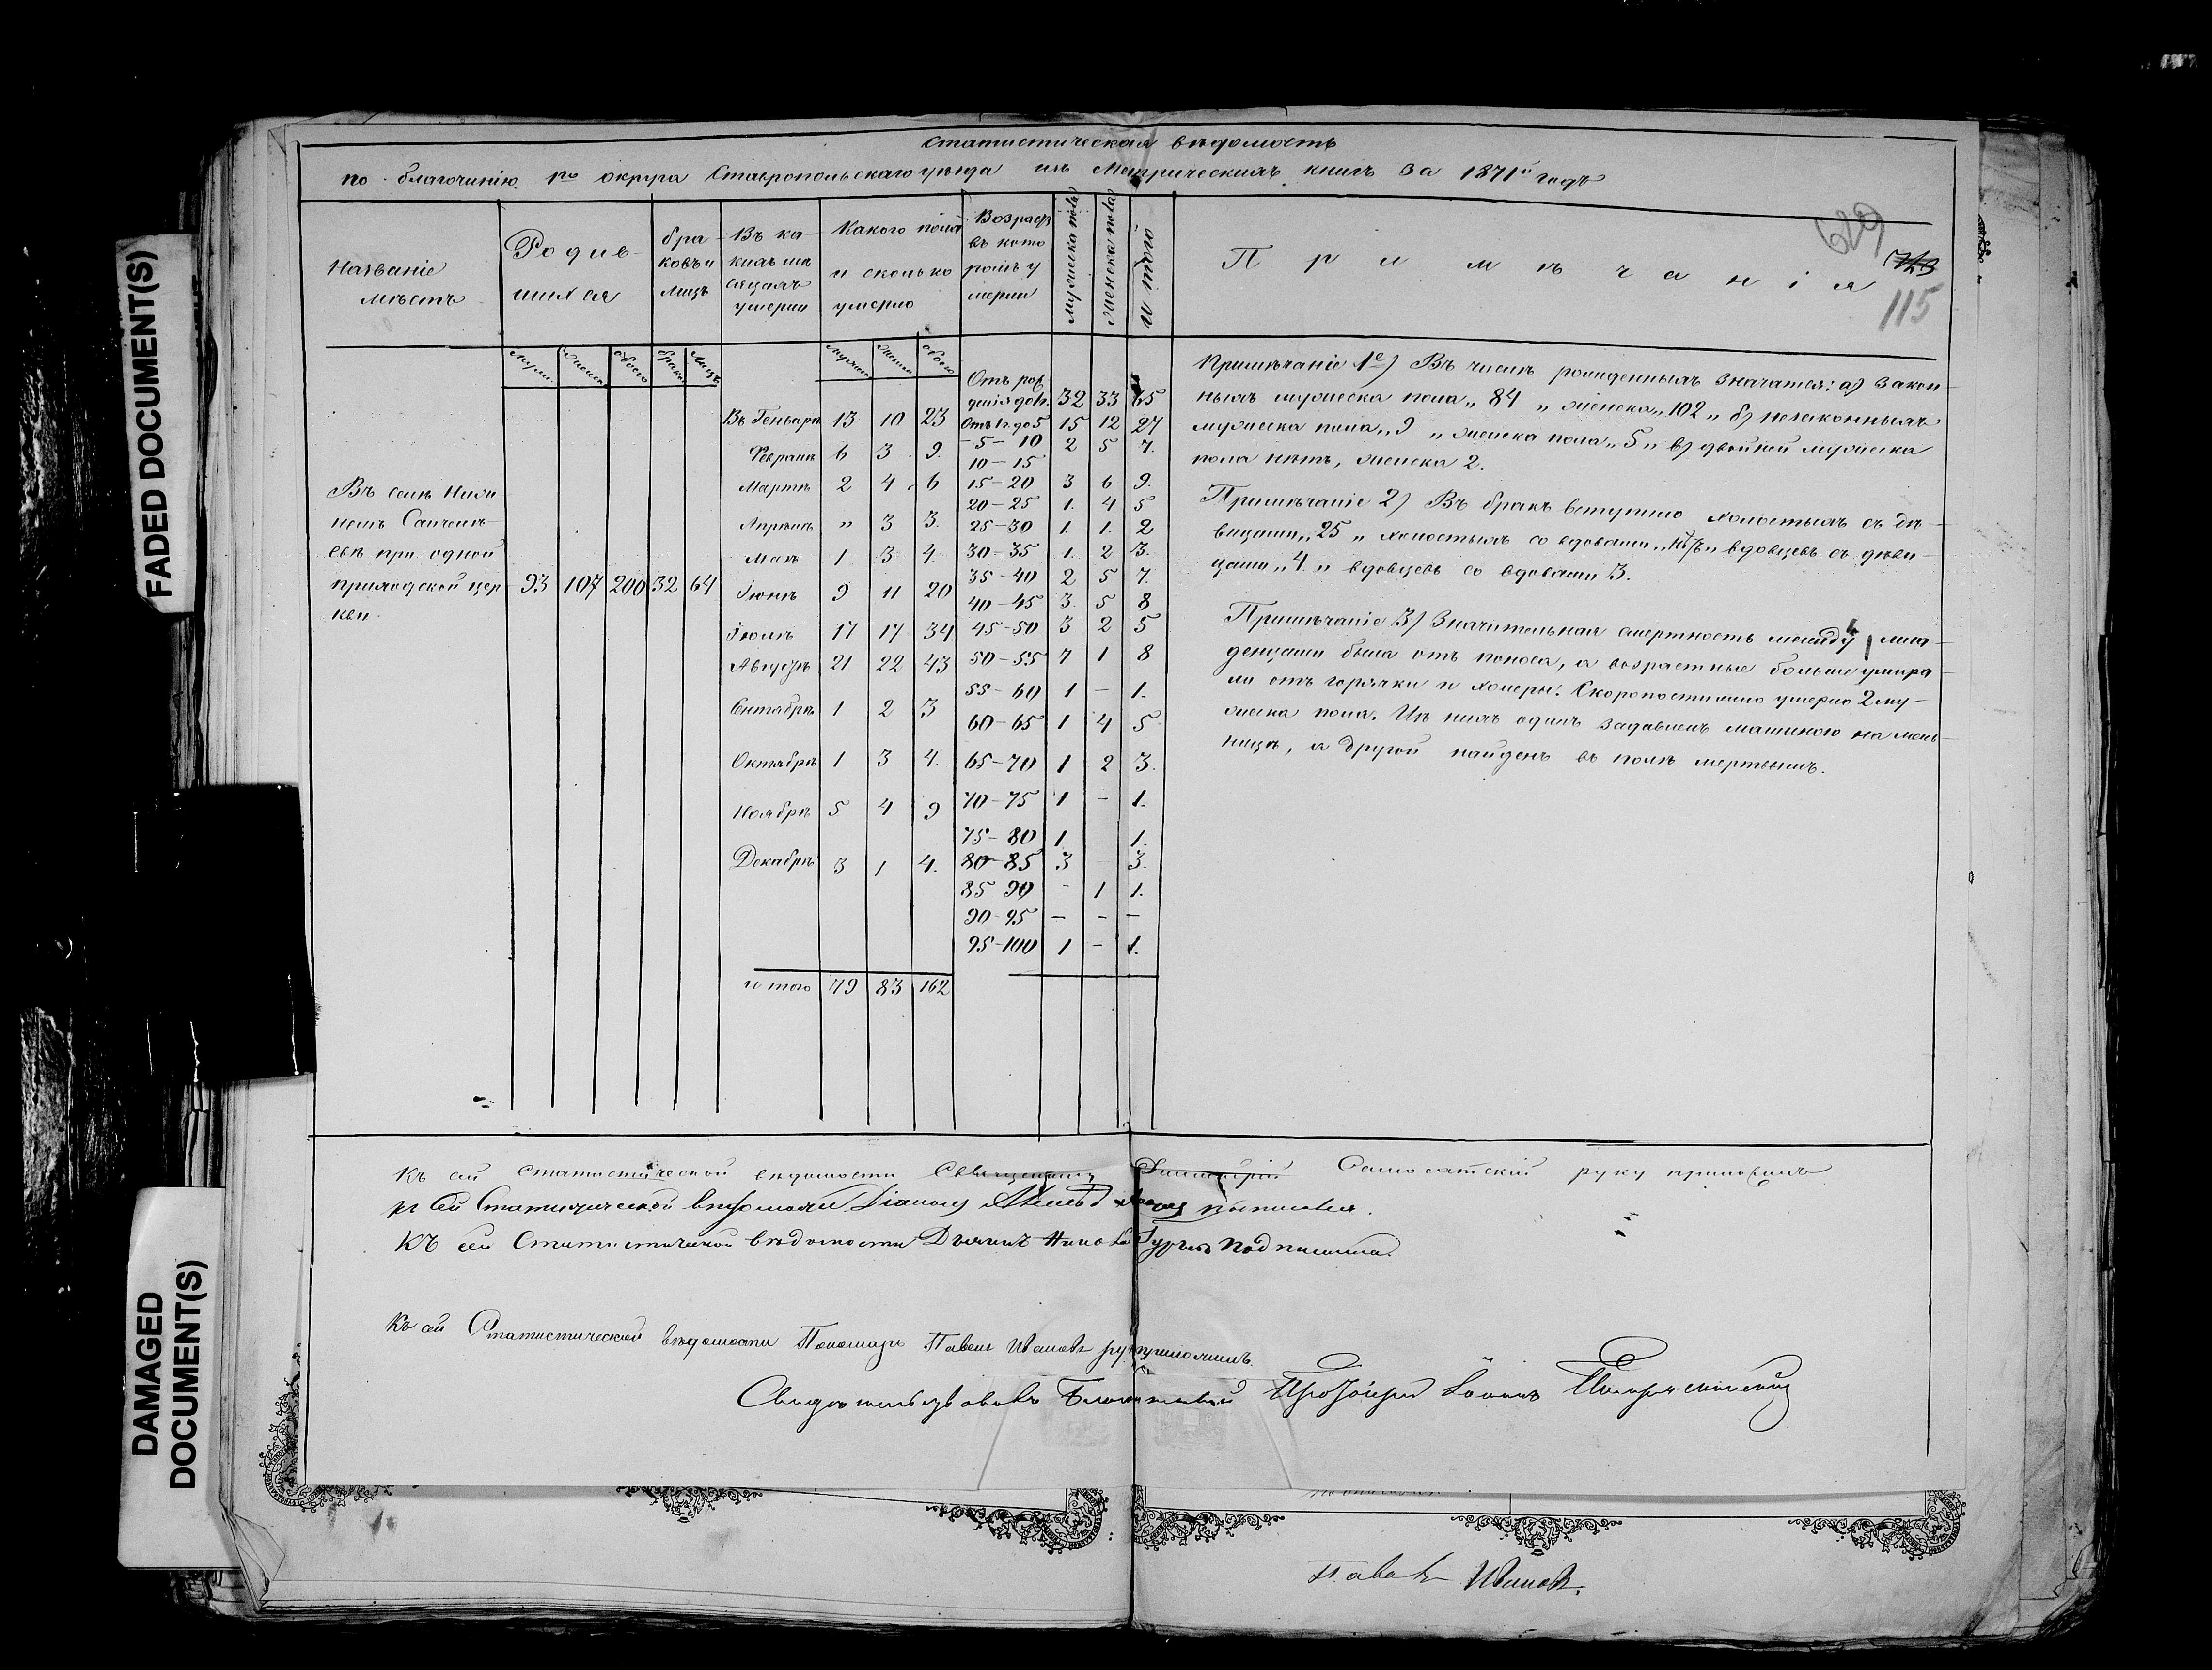 FADED DOCUMENT(S)
DAMAGED DOCUMENT(S)
Статистическая вѣдомость
по благочинію 1го округа Ставропольскаго уѣзда изъ Метрическихъ книгъ за 1871й годъ
629
713
115
Названіе мѣстъ
Родившихся
браковъ и лицъ
Въ какихъ мѣсяцахъ умерли
Какого пола и сколько умерло
Возрастъ въ которомъ умерли
мужеска пола
женска пола
И того
Примѣчанія
мужс. женска обоего браковъ лицъ мужска женска обоего
Въ селѣ Нижнемъ Санчелѣевѣ при одной приходской церкви. 93 107 200 32 64
Въ Генварѣ 13 10 23
Февралѣ 6 3 9.
Мартѣ 2 4 6
Апрѣлѣ „ 3 3.
Маѣ 1 3 4.
Іюнѣ 9 11 20
Іюлѣ 17 17 34.
Августѣ 21 22 43
Сентябрѣ 1 2 3
Октябрѣ 1 3 4.
Ноябрѣ 5 4 9
Декабрѣ 3 1 4.
итого 79 83 162
Отъ рожденія до 1г. 32 33 65
Отъ 1г. до 5 15 12 27
- 5 - 10 2 5 7.
10 - 15
15 - 20 3 6 9.
20 - 25 1. 4 5
25 - 30 1. 1. 2
30 - 35 1. 2 3.
35 - 40 2 5 7.
40 - 45 3. 5 8
45 - 50 3 2 5
50 - 55 7 1 8
55 - 60 1 - 1.
60 - 65 1 4 5
65 - 70 1 2 3.
70 - 75 1 - 1.
75 - 80 1. 1.
80 - 85 3 3.
85 90 - 1 1.
90 - 95 - - -
95 - 100 1 - 1.
Примѣчаніе 1е) Въ числѣ рожденныхъ значатся: а) закон-
ныхъ мужеска пола „ 84 „ женска „ 102 „ б) незаконныхъ
мужеска пола „ 9 „ женска пола „ 5 „ в) двойней мужеска
пола нѣтъ, женска 2.
Примѣчаніе 2) Въ бракъ вступило холостыхъ съ дѣ-
вицами „ 25 „ холостыхъ со вдовами „ нѣтъ „ вдовцевъ съ дѣви-
цами „ 4 „ вдовцевъ со вдовами 3.
Примѣчаніе 3) Значительная смертность между мла-
денцами была отъ поноса, а возрастные больше умира-
ли отъ горячки и холеры. Скоропостижно умерло 2 му-
жеска пола. Изъ нихъ одинъ задавленъ машиною на мель-
ницѣ, а другой найденъ въ полѣ мертвымъ.
Къ сей статистической вѣдомости Священникъ Димитрій Самосатскій руку приложилъ
Къ сей Статистической вѣдомости Діаконъ подписался.
Къ сей Статистической вѣдомости Дьячекъ Гурьевъ подписался.
Къ сей Статистической вѣдомости Пономарь Павелъ Ивановъ руку приложилъ.
Свидѣтельствовалъ Благочинный Протоіерей Іоаннъ
Павелъ Ивановъ.